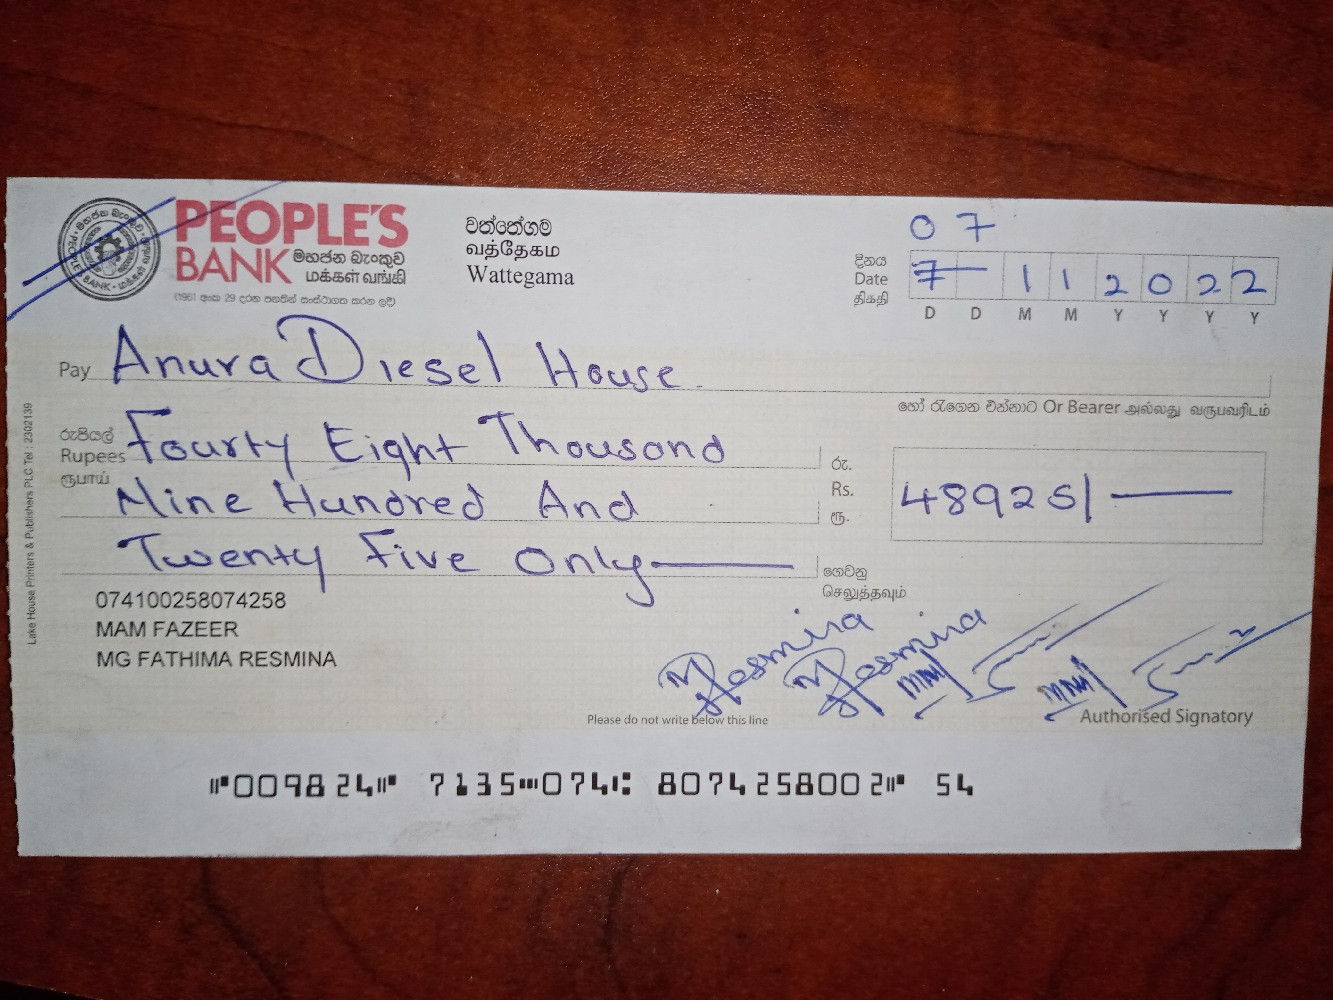 PEOPLE'S
BANK මහජන බැංකුව
மக்கள் வங்கி
(1961 අංක 29 දරන පනතින් සංස්ථාගත කරන ලදී)
වත්තේගම
வத்தேகம
Wattegama
07
දිනය
Date
திகதி
7 1 1 2 0 2 2
D D M M Y Y Y Y
Pay Anura Diesel House
හෝ රැගෙන එන්නාට Or Bearer அல்லது வருபவரிடம்
රුපියල්
Rupees
ரூபாய்
Fourty Eight Thousand
Nine Hundred And
Twenty Five Only
රු.
Rs.
ரூ.
48925/
ගෙවනු
செலுத்தவும்
074100258074258
MAM FAZEER
MG FATHIMA RESMINA
Resmina Resmina
Please do not write below this line
Authorised Signatory
Lake House Printers & Publishers PLC Tel : 2302139
⑈009824⑈ 7135⑉074⑆ 8074258002⑈ 54